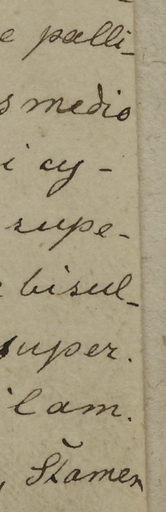 e palli-
s medio
i cy-
supe-
bisul-
super.
ilam.
, Stamen